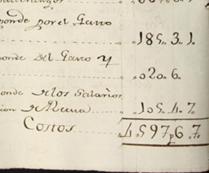 ponde por el Gasto
185.3.1.
ponde del Gasto y
.020.6.
onde de los Salarios
cion de Mena 105.4.7.
Costos 4.597p6.7